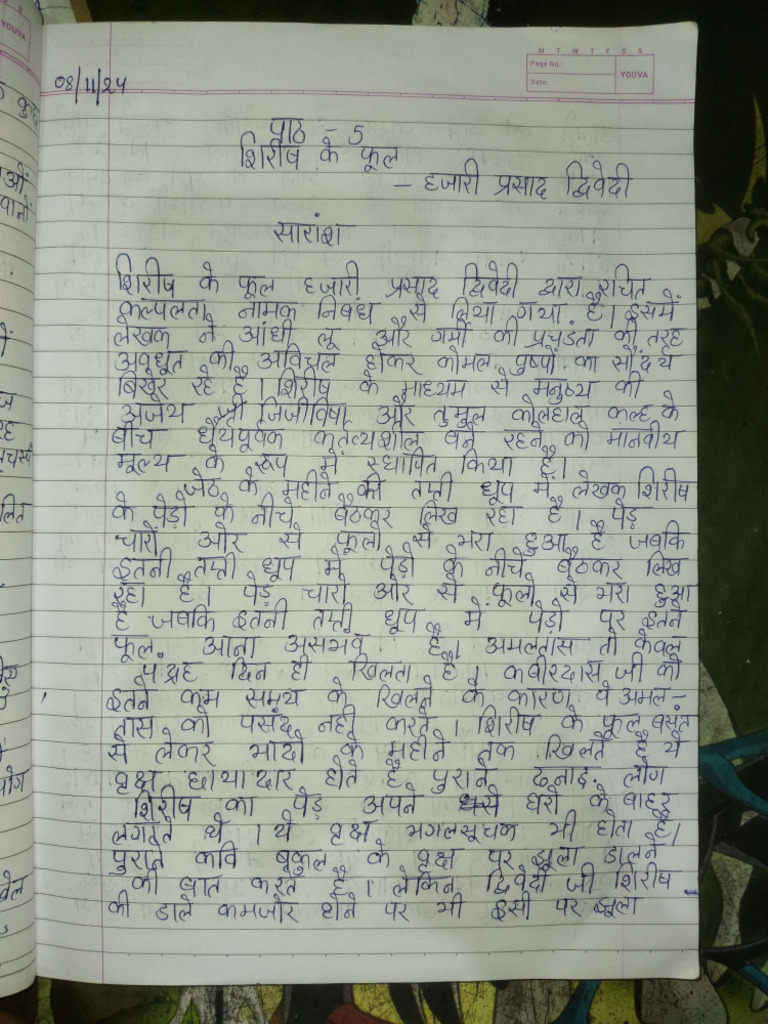 M T W T F S S
Page No.:
Date:
YOUVA
YOUVA
08/11/24
पाठ - 5
शिरीष के फूल
- हजारी प्रसाद द्विवेदी
सारांश
शिरीष के फूल हजारी प्रसाद द्विवेदी द्वारा रचित
कल्पलता नामक निबंध से लिया गया है। इसमें
लेखक ने आंधी लू और गर्मी की प्रचंडता की तरह
अवधूत की अविचल होकर कोमल पुष्पों का सौंदर्य
बिखेर रहे है। शिरीष के माध्यम से मनुष्य की
अजेय जिजीविषा और तुमुल कोलहाल कल्ह के
बीच धैर्यपूर्वक कर्तव्यशील बने रहने को मानवीय
मूल्य के रूप में स्थापित किया है।
जेठ के महीने की तप्ती धूप में लेखक शिरीष
के पेड़ो के नीचे बैठकर लिख रहा है। पेड़
चारों ओर से फूलो से भरा हुआ है जबकि
इतनी तप्ती धूप में पेड़ो के नीचे बैठकर लिख
रहा है। पेड़ चारों ओर से फूलो से भरा हुआ
है जबकि इतनी तप्ती धूप में पेड़ो पर इतने
फूल. आना असंभव है। अमलतास तो केवल
दिन ही खिलता है। कबीरदास जी को
इतने कम समय के खिलने के कारण वे अमल-
तास को पसंद नही करते। शिरीष के फूल बसंत
से लेकर भादो के महीने तक खिलते है ये
वृक्ष छायादार होते है पुराने लोग
शिरीष का पेड़ अपने घरो के बाहर
लगाते थे। ये वृक्ष मंगलसूचक भी होता है।
पुराने कवि बकुल के वृक्ष पर झूला डालने
की बात करते है। लेकिन द्विवेदी जी शिरीष
की डाले कमजोर होने पर भी इसी पर झूला